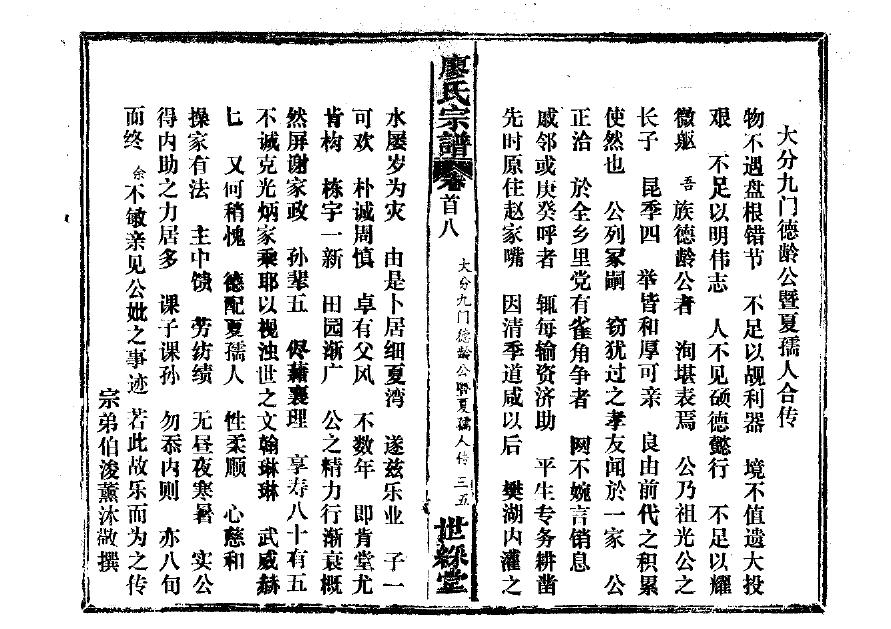 大分九门德龄公暨夏孺人合传
物不遇盘根错节 不足以觇利器 境不值遗大投
艰 不足以明伟志 人不见硕德懿行 不足以耀
微躯 吾族德龄公者 洵堪表焉 公乃祖光公之
长子 昆季四 举皆和厚可亲 良由前代之积累
使然也 公列冢嗣 窃犹过之孝友闻於一家 公
正洽 於全乡里党有雀角争者 网不婉言销息
戚邻或庚癸呼者 辄每输资济助 平生专务耕凿
先时原住赵家嘴 因清季道咸以后 樊湖内灌之
廖氏宗譜
卷首八
大分九门德龄公暨夏孺人传 三五
世綵堂
水屡岁为灾 由是卜居细夏湾 遂兹乐业 子一
可欢 朴诚周慎 卓有父风 不数年 即肯堂尤
肯构 栋宇一新 田园渐广 公之精力行渐衰概
然屏谢家政 孙辈五 侭藉襄理 享寿八十有五
不诚克光炳家乘耶以视浊世之文翰琳琳 武威赫
匕 又何稍愧 德配夏孺人 性柔顺 心慈和
操家有法 主中馈 劳纺绩 无昼夜寒暑 实公
得内助之力居多 课子课孙 勿忝内则 亦八旬
而终 余不敏亲见公妣之事迹 若此故乐而为之传
宗弟伯浚薰沐敬撰